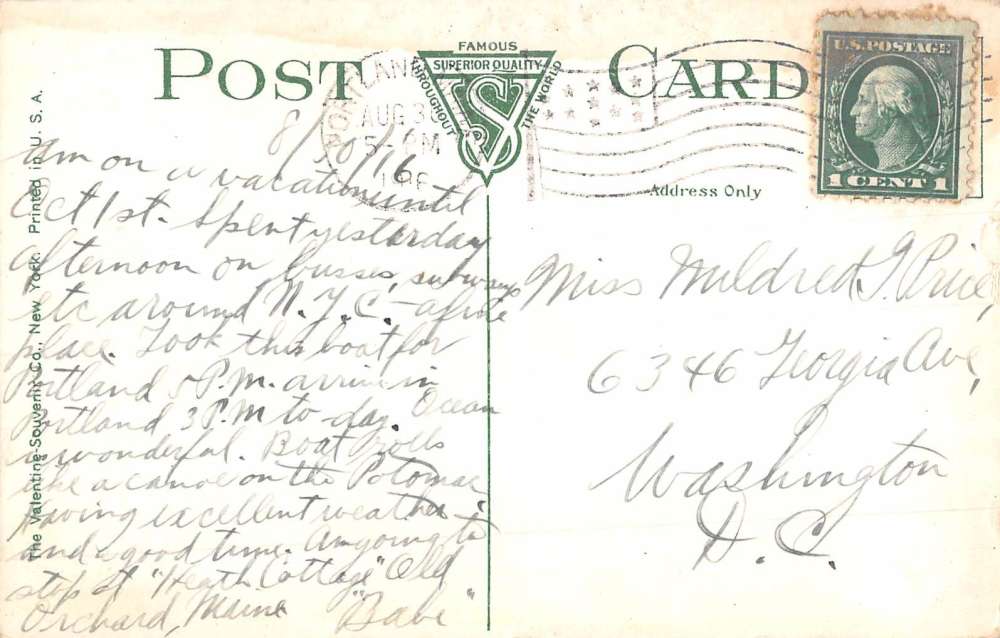 POST CARD
FAMOUS
SUPERIOR QUALITY
THROUGHOUT
THE WORLD
VS
PORTLAND
AUG 30
5-PM
U.S. POSTAGE
1 CENT 1
Address Only
The Valentine-Souvenir Co., New York. Printed in U. S. A.
8/30/16
Am on a vacation until
Oct 1st. Spent yesterday
afternoon on busses, subways
etc around N.Y.C. - a fine
place. Took this boat for
Portland 5 P.M. arrive in
Portland 3 P.M to-day. Ocean
is wonderful. Boat rolls
like a canoe on the Potomac
Having excellent weather
and a good time. Am going to
stop at "Heath Cottage" Old
Orchard, Maine "Babe"
Miss Mildred Price,
6346 Georgia Ave,
Washington
D. C.